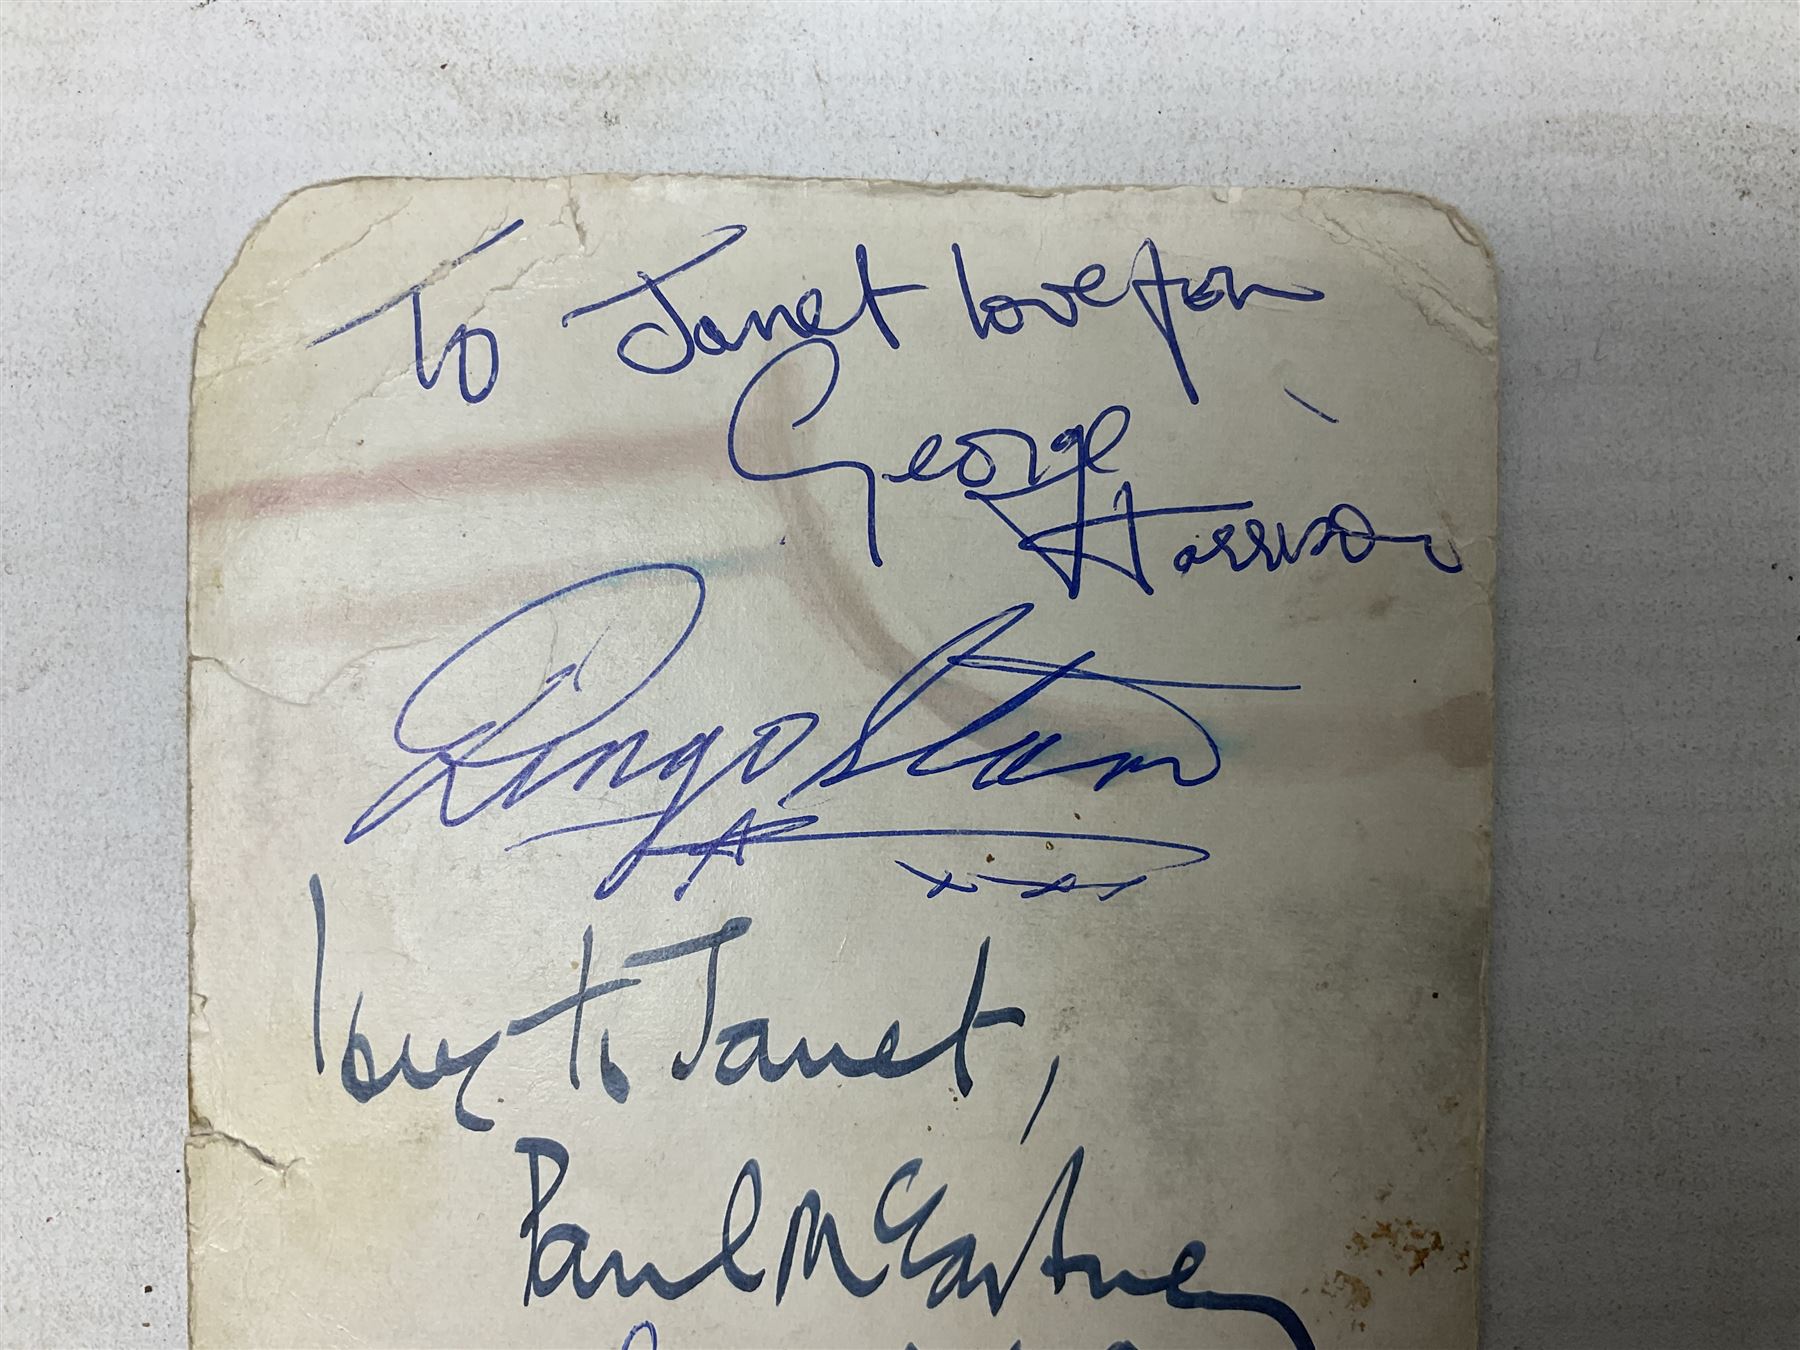 To Janet love from
George
Harrison
Ringo Starr
xxx
love to Janet,
Paul McCartney